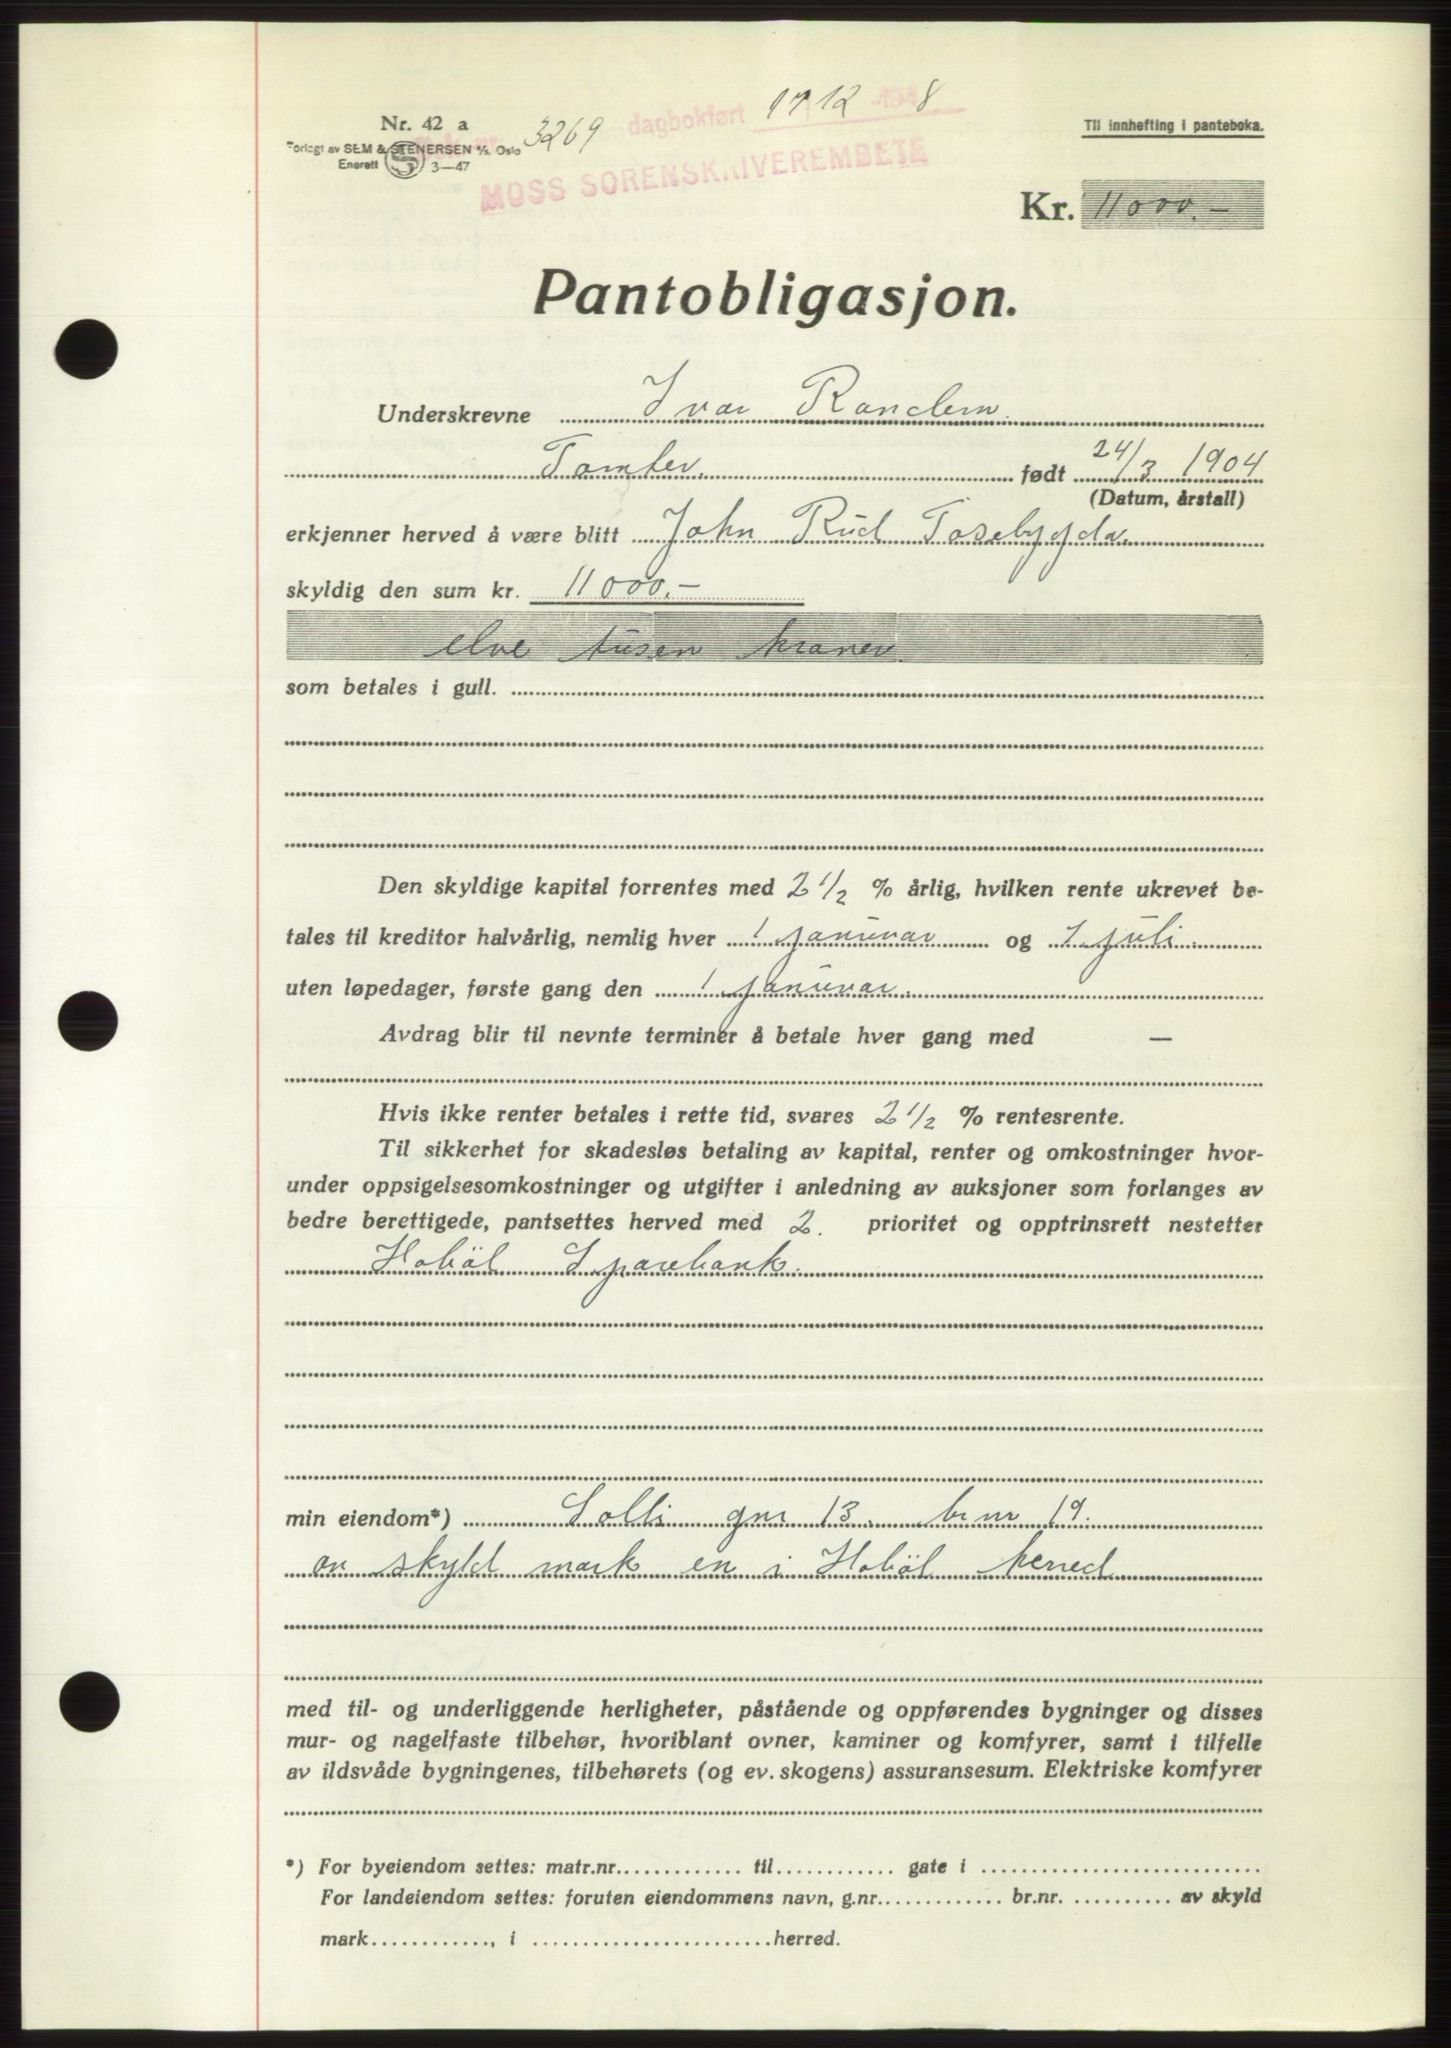 Nr. 42 a
Forlagt av SEM & STENERSEN A/S. Oslo
Enerett 3—47
3269 dagbokført 17 12 1948
MOSS SORENSKRIVEREMBETE
Til innhefting i panteboka.
Kr. 11000.-
Pantobligasjon.
Underskrevne Ivar Randem.
Tomter. født 24/3 1904
(Datum, årstall)
erkjenner herved å være blitt John Rud Tosebygda.
skyldig den sum kr. 11000.-
elve tusen kroner.
som betales i gull.
Den skyldige kapital forrentes med 2 1/2 % årlig, hvilken rente ukrevet be-
tales til kreditor halvårlig, nemlig hver 1 januar og 1 juli.
uten løpedager, første gang den 1 januar.
Avdrag blir til nevnte terminer å betale hver gang med —
Hvis ikke renter betales i rette tid, svares 2 1/2 % rentesrente.
Til sikkerhet for skadesløs betaling av kapital, renter og omkostninger hvor-
under oppsigelsesomkostninger og utgifter i anledning av auksjoner som forlanges av
bedre berettigede, pantsettes herved med 2. prioritet og opptrinsrett nestetter
Hobøl Sparebank.
min eiendom*) Solli gnr 13. br nr 19.
av skyld mark en i Hobøl herred
med til- og underliggende herligheter, påstående og oppførendes bygninger og disses
mur- og nagelfaste tilbehør, hvoriblant ovner, kaminer og komfyrer, samt i tilfelle
av ildsvåde bygningenes, tilbehørets (og ev. skogens) assuransesum. Elektriske komfyrer
*) For byeiendom settes: matr.nr. til gate i
For landeiendom settes: foruten eiendommens navn, g.nr. br.nr. av skyld
mark , i herred.